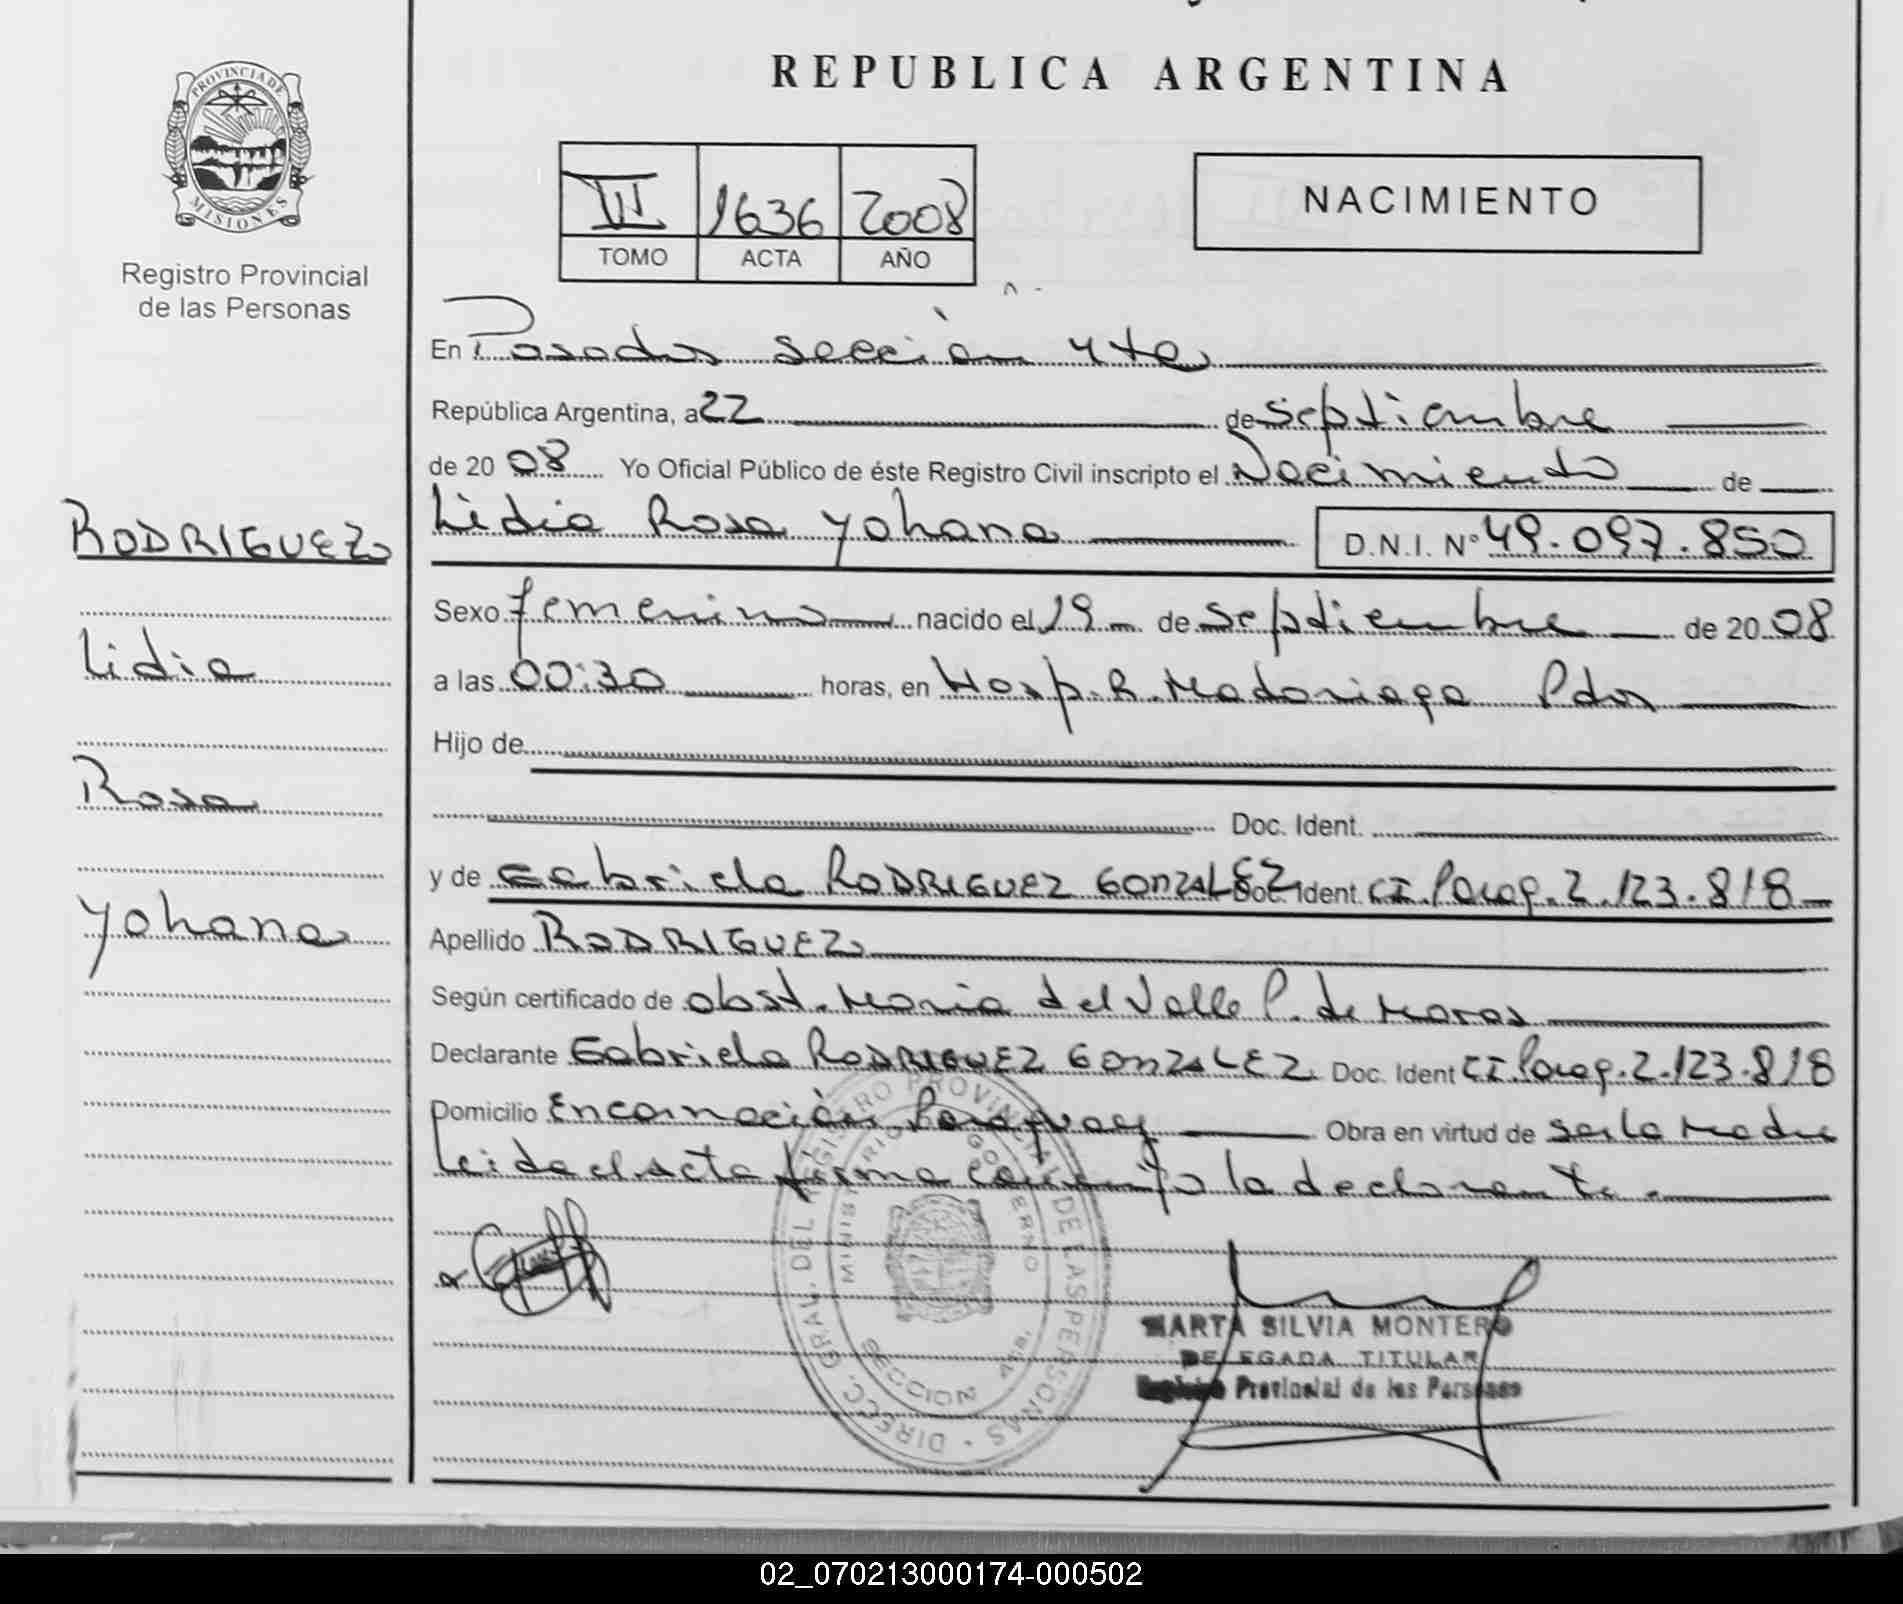 REPUBLICA ARGENTINA
PROVINCIA DE
MISIONES
Registro Provincial
de las Personas
III 1636 2008
TOMO ACTA AÑO
NACIMIENTO
En Posadas sección 4ta
República Argentina, a 22 de septiembre
de 20 08 Yo Oficial Público de éste Registro Civil inscripto el Nacimiento de
RODRIGUEZ
Lidia Rosa Yohana D.N.I. Nº 49.097.850
Sexo femenino nacido el 19 de septiembre de 20 08
Lidia
a las 00:30 horas, en Hosp. R. Madariaga Pdas
Hijo de
Rosa
Doc. Ident.
y de Gabriela RODRIGUEZ GONZALEZ Doc. Ident. CI. Parag. 2.123.818
Yohana
Apellido RODRIGUEZ
Según certificado de obst. Maria del Valle P. de
Declarante Gabriela RODRIGUEZ GONZALEZ Doc. Ident CI. Parag. 2.123.818
Domicilio Encarnación Paraguay Obra en virtud de ser la madre
Leida el Acta firma conmigo la declarante.
DIRECC. GRAL. DEL REGISTRO PROVINCIAL DE LAS PERSONAS
MINISTERIO GOBIERNO
SECCION 4ta.
MARTA SILVIA MONTERO
DELEGADA TITULAR
Registro Provincial de las Personas
02_070213000174-000502